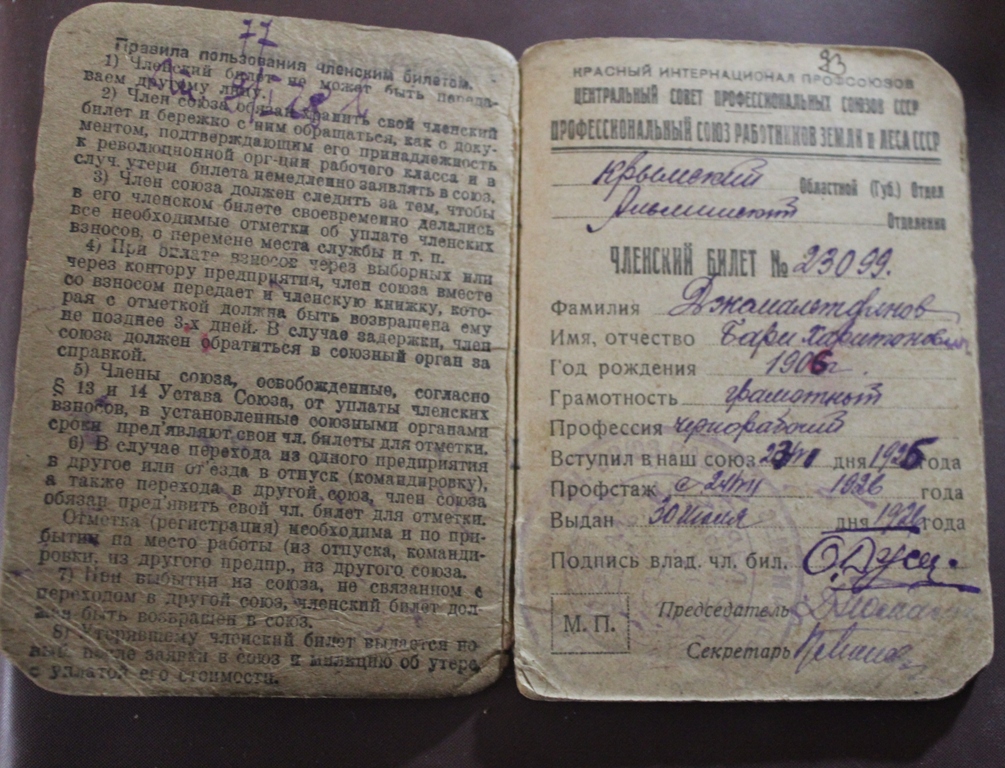 77
Правила пользования членским билетом.
1) Членский билет не может быть переда-
ваем другому лицу.
2) Член союза обязан хранить свой членский
билет и бережко с ним обращаться, как с доку-
ментом, подтверждающим его принадлежность
к революционной орг-ции рабочего класса и в
случ. утери билета немедленно заявлять в союз.
3) Член союза должен следить за тем, чтобы
в его членском билете своевременно делались
все необходимые отметки об уплате членских
взносов, о перемене места службы и т. п.
4) При оплате взносов через выборных или
через контору предприятия, член союза вместе
со взносом передает и членскую книжку, кото-
рая с отметкой должна быть возвращена ему
не позднее 3-х дней. В случае задержки, член
союза должен обратиться в союзный орган за
справкой.
5) Члены союза, освобожденные, согласно
§ 13 и 14 Устава Союза, от уплаты членских
взносов, в установленные союзными органами
сроки пред'являют свои чл. билеты для отметки.
6) В случае перехода из одного предприятия
в другое или от'езда в отпуск (командировку),
а также перехода в другой союз, член союза
обязан пред'явить свой чл. билет для отметки.
Отметка (регистрация) необходима и по при-
бытии на место работы (из отпуска, команди-
ровки, из другого предпр., из другого союза.
7) При выбытии из союза, не связанном с
переходом в другой союз, членский билет дол-
жен быть возвращен в союз.
8) Утерявшему членский билет выдается но-
вый после заявки в союз и милицию об утере,
с уплатой его стоимости.
93
КРАСНЫЙ ИНТЕРНАЦИОНАЛ ПРОФСОЮЗОВ
ЦЕНТРАЛЬНЫЙ СОВЕТ ПРОФЕССИОНАЛЬНЫХ СОЮЗОВ СССР
ПРОФЕССИОНАЛЬНЫЙ СОЮЗ РАБОТНИКОВ ЗЕМЛИ и ЛЕСА СССР
Крымский Областной (Губ.) Отдел
Отделения
ЧЛЕНСКИЙ БИЛЕТ № 23099.
Фамилия Джамалетдинов
Имя, отчество Бари Харитонович
Год рождения 1906 г.
Грамотность грамотный
Профессия чернорабочий
Вступил в наш союз дня 1926 года
Профстаж с 1926 года
Выдан 30 июня дня 1926 года
Подпись влад. чл. бил.
М. П.
Председатель
Секретарь